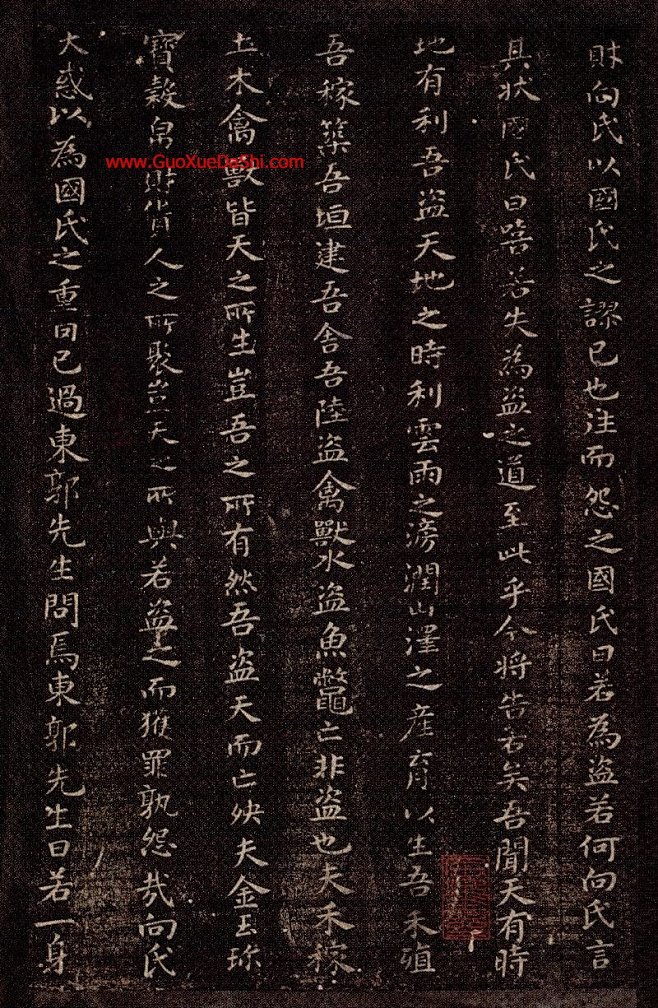 財向氏以國氏之謬已也往而怨之國氏曰若為盜若何向氏言
其狀國氏曰嘻若失為盜之道至此乎今將告若矣吾聞天有時
地有利吾盜天地之時利雲雨之滂潤山澤之産育以生吾禾殖
吾稼築吾垣建吾舍吾陸盜禽獸水盜魚鼈亡非盜也夫禾稼
土木禽獸皆天之所生豈吾之所有然吾盜天而亡殃夫金玉珎
寶穀帛財貨人之所聚豈天之所與若盜之而獲罪孰怨哉向氏
大惑以為國氏之重罔已過東郭先生問焉東郭先生曰若一身
www.GuoXueDaShi.com